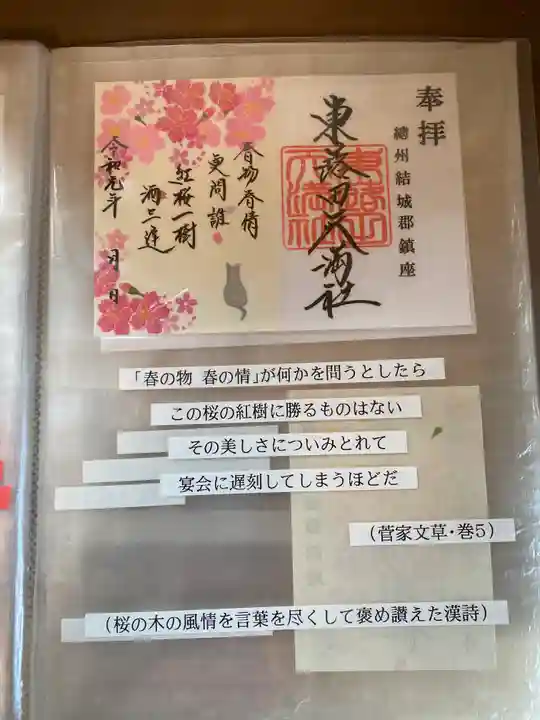 奉拝
總州結城郡鎮座
東蕗田天満社
春物春情
更問誰
紅桜一樹
酒三遅
令和元年 月 日
「春の物 春の情」が何かを問うとしたら
この桜の紅樹に勝るものはない
その美しさについみとれて
宴会に遅刻してしまうほどだ
(菅家文草・巻5)
(桜の木の風情を言葉を尽くして褒め讃えた漢詩)